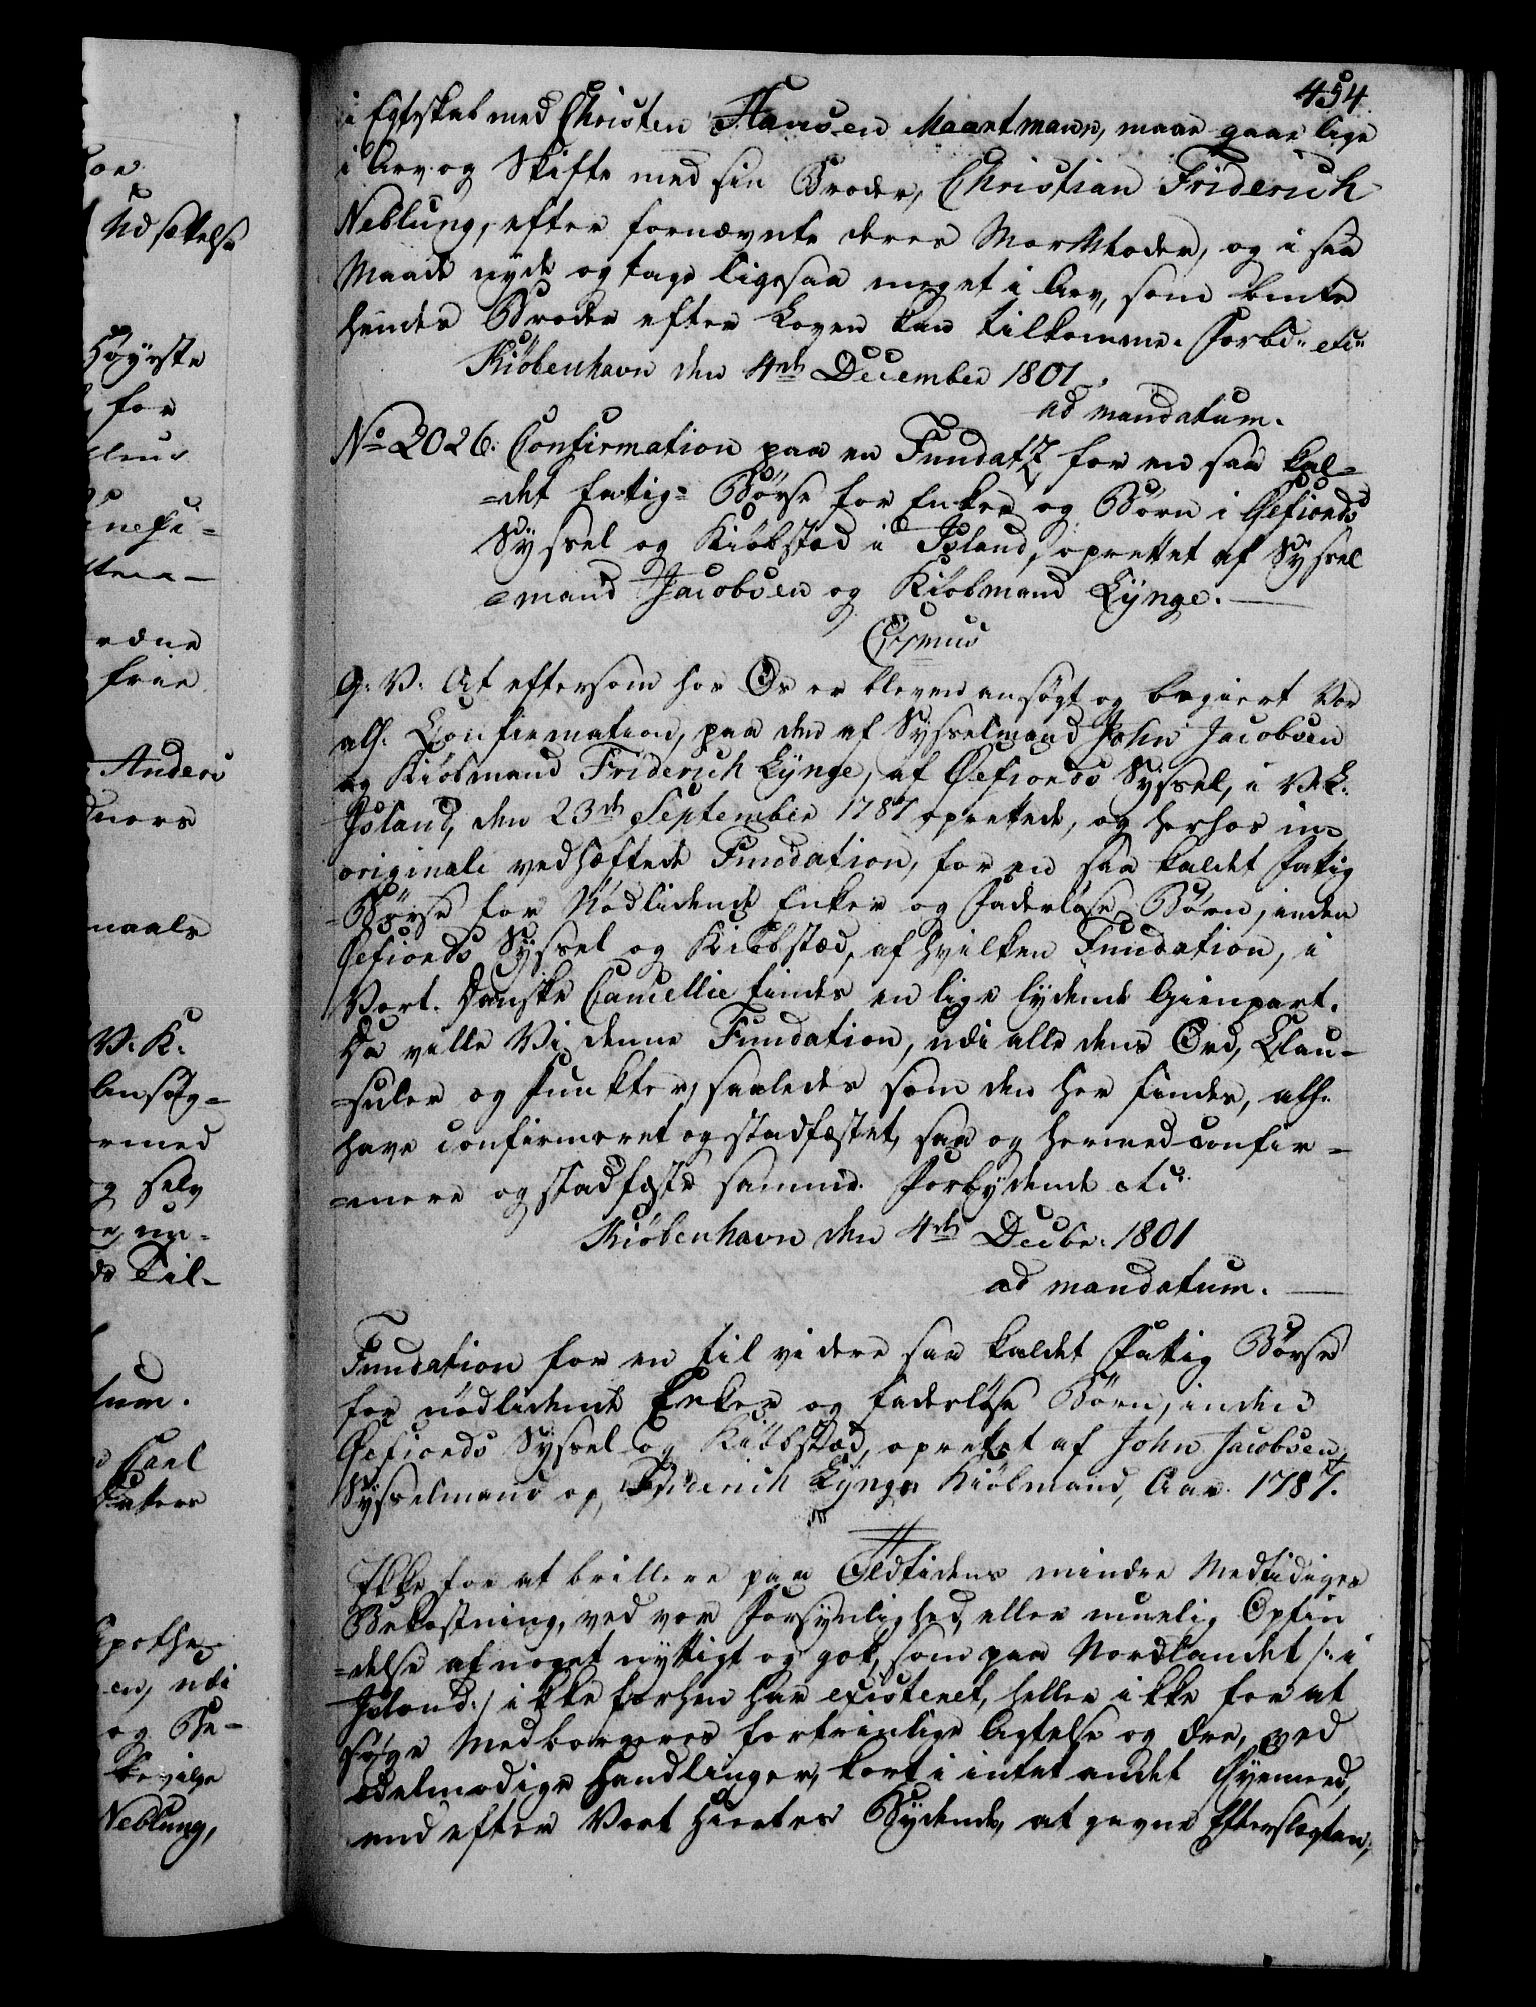 454
i Egteskab med Christen Hansen Maartmann, maae gaae lige
i Arv og Skifte med sin Broder, Christian Friderich
Neblung, efter fornævnte deres MorModer, og i saa
Maade nyde og tage ligesaa meget i Arv, som bemte
hendes Broder efter Loven kan tilkomme. Forbd: etc:
Kiøbenhavn den 4de December 1801.
ad mandatum.
No 2026. Confirmation paa en Fundatz for en saa kal=
=det fatig= Børse for Enker og Børn i Øefiords
Syssel og Kiøbstad i Island, oprettet af Syssel
=mand Jacobsen og Kiøbmand Lynge.
G: V: At eftersom hos Os er bleven ansøgt og begiert Vor
alh. Confirmation, paa den af Sysselmand John Jacobsen
og Kiøbmand Friderich Lynge, af Øefiords Syssel, i V. L.
Island, den 23de September 1787 oprettede, og herhos in
originali vedhæftede Fundation, for en saa kaldet Fatig
Børse for Nødlidende Enker og Faderløse Børn, inden
Øefiords Syssel og Kiøbstæd, af hvilken Fundation, i
Vort Danske Cancellie findes en lige lydende Gienpart.
Da ville Vi denne Fundation, udi alle dens Ord, Clau=
=suler og Puncter, saaledes som den her findes, alh.
have confirmeret og stadfæstet, saa og hermed confir=
=mere og stadfæste samme. Forbydende etc:
Kiøbenhavn den 4de Decbr: 1801
ad mandatum.
Fundation for en til videre saa kaldet Fatig Børse
for nødlidende Enker og faderløse Børn, inden
Øefiords Syssel og Kiøbstæd, oprettet af John Jacobsen
Sysselmand og Friderich Lynge Kiøbmand, Aar 1787.
Ikke for at brillere paa Oldtidens mindre Medtidiges
Bekostning, ved vor Forsynlighed, eller muelig Opfin
=delse af noget nyttigt og godt, som paa Nordlandet /: i
Island :/ ikke forhen har existeret, heller ikke for at
søge Medborgeres fortrinlige Agtelse og Ære, ved
ædelmodige Handlinger, kort i intet andet Øyemeed,
end efter Vort Hiertes Bydende, at gavne Efterslægten,